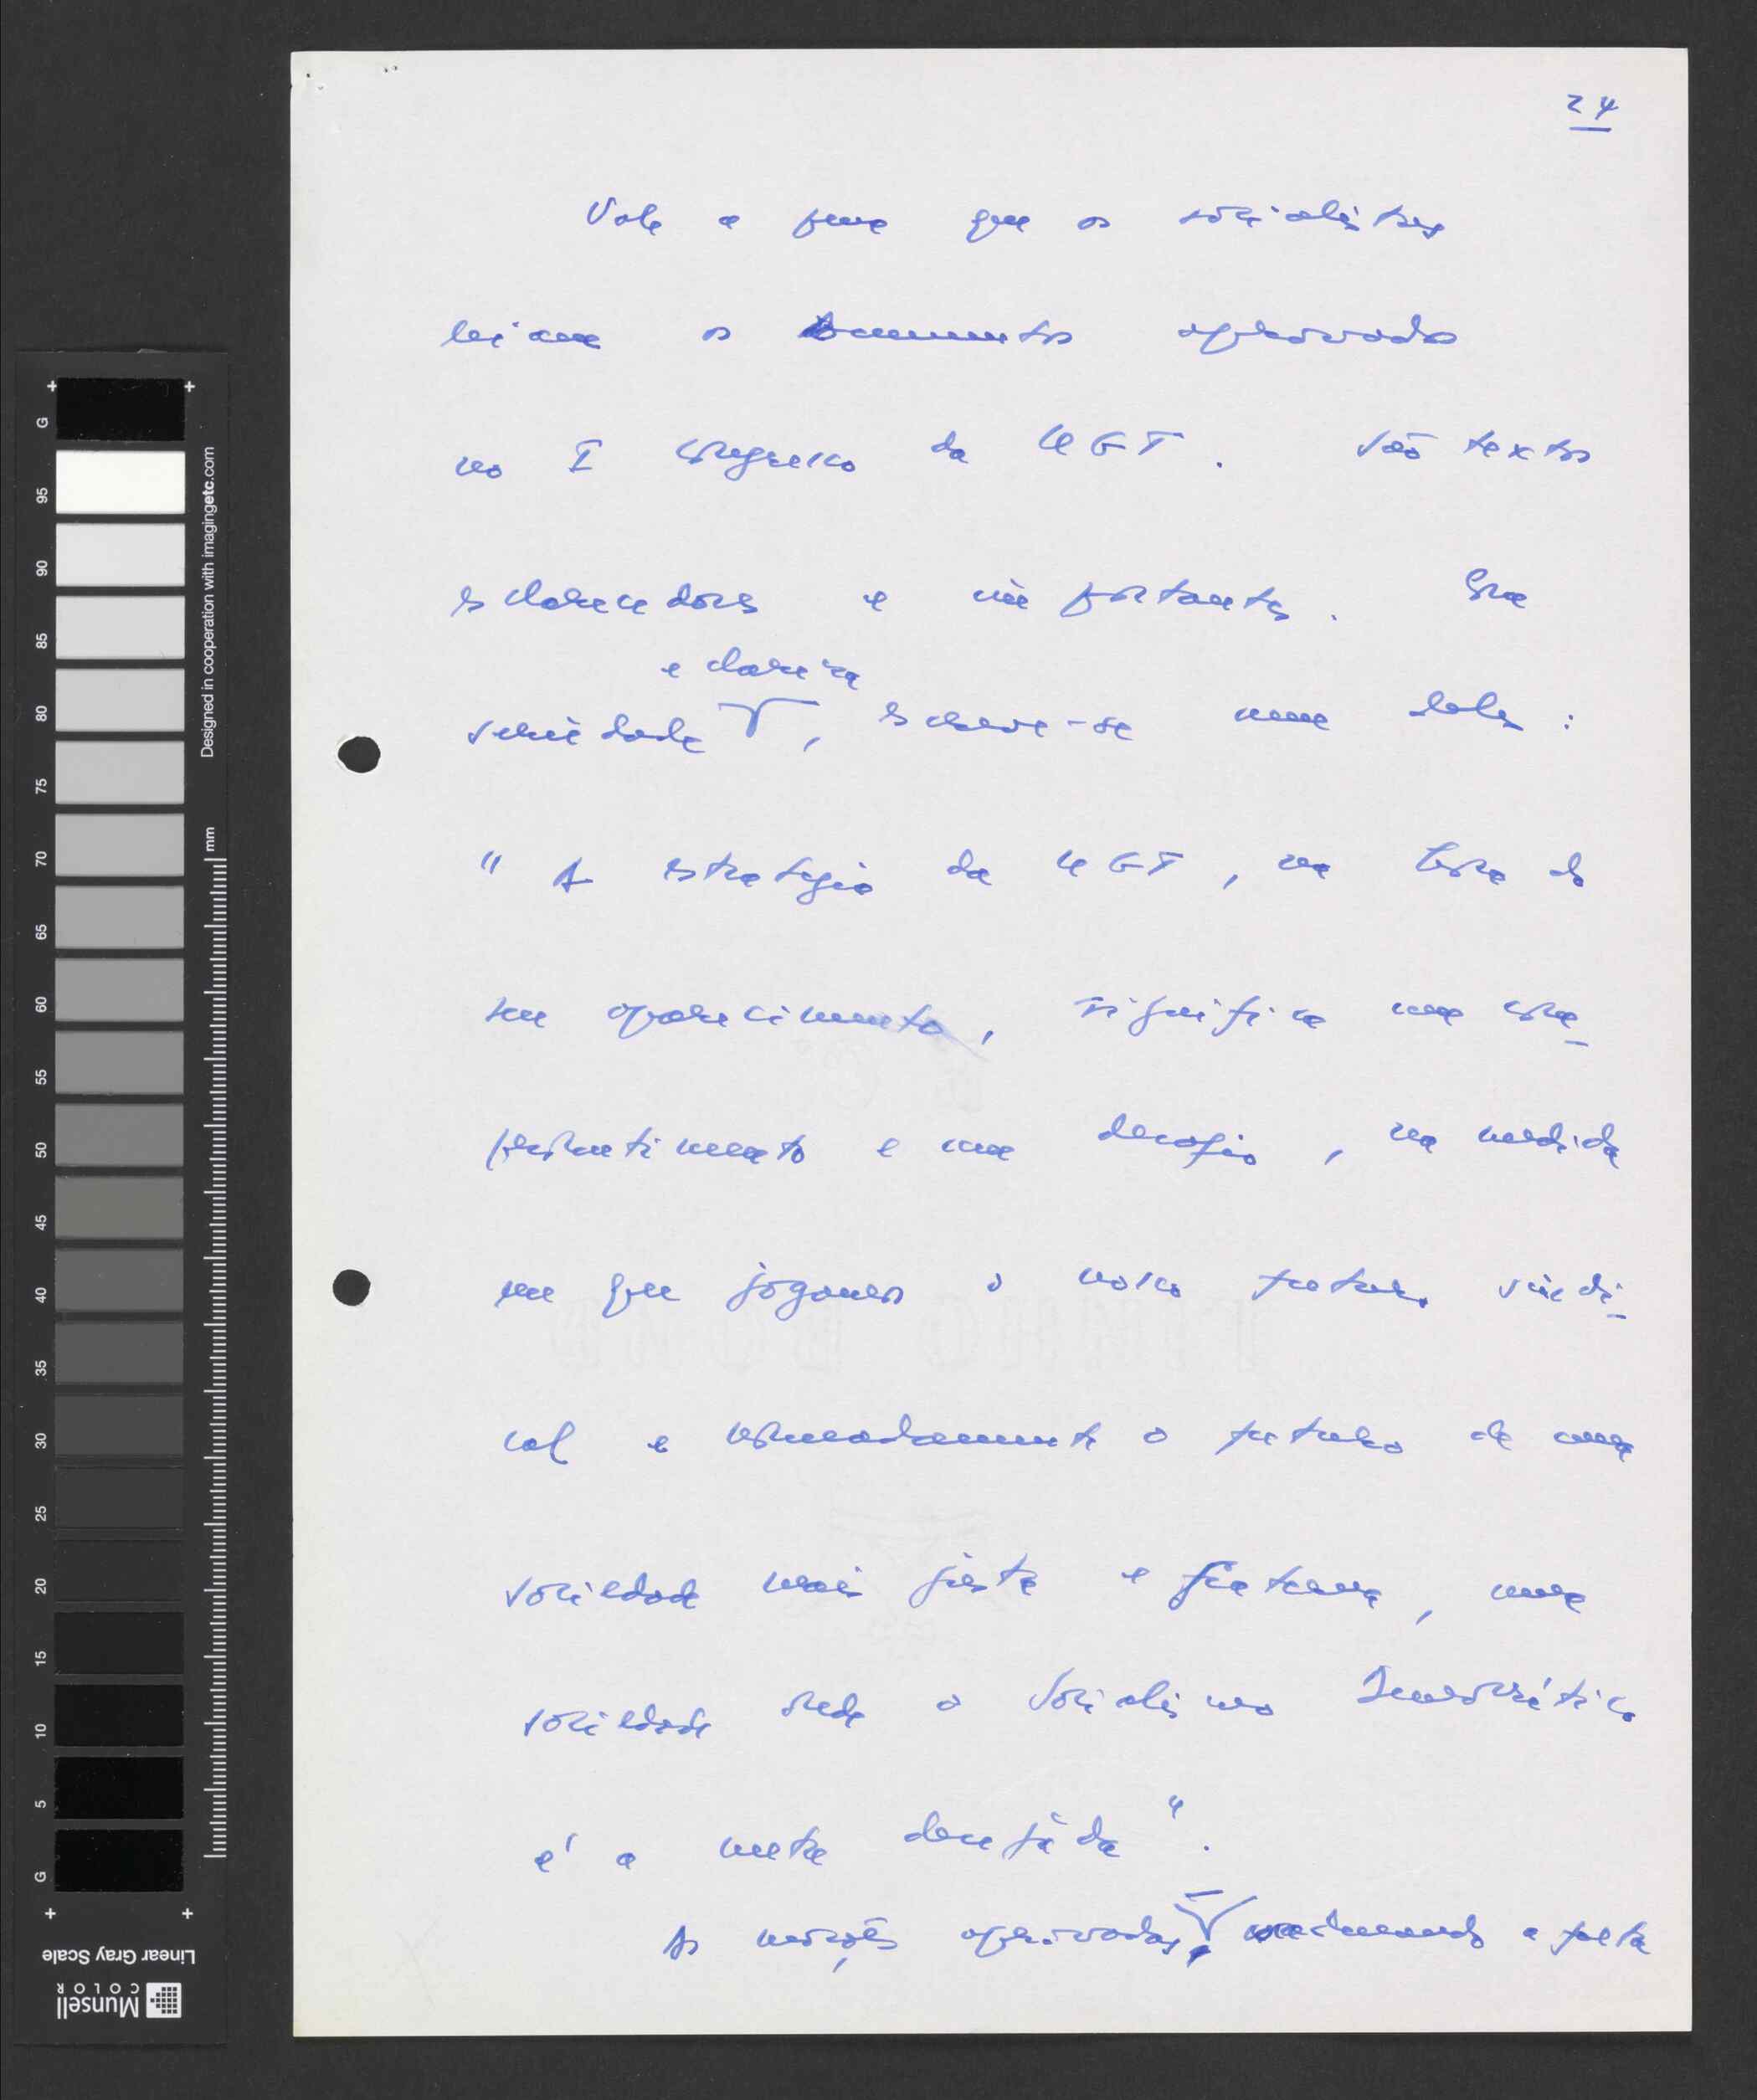 24
Vale a pena que os socialistas
leiam os documentos aprovados
no I Congresso da UGT. São textos
esclarecedores e importantes. Com
e clareza
seriedade, escreve-se num deles:
"A estratégia da UGT, na hora do
seu aparecimento, significa um com-
prometimento e um desafio, na medida
em que jogamos o nosso futuro sindi-
cal e nomeadamente o futuro de uma
sociedade mais justa e fraterna, uma
sociedade onde o Socialismo Democrático
é a meta desejada".
As moções aprovadas, a
G 95 90 85 80 75 70 65 60 55 50 45 40 35 30 25 20 15 10 5 G
mm
Designed in cooperation with imagingetc.com
Linear Gray Scale
Munsell
COLOR